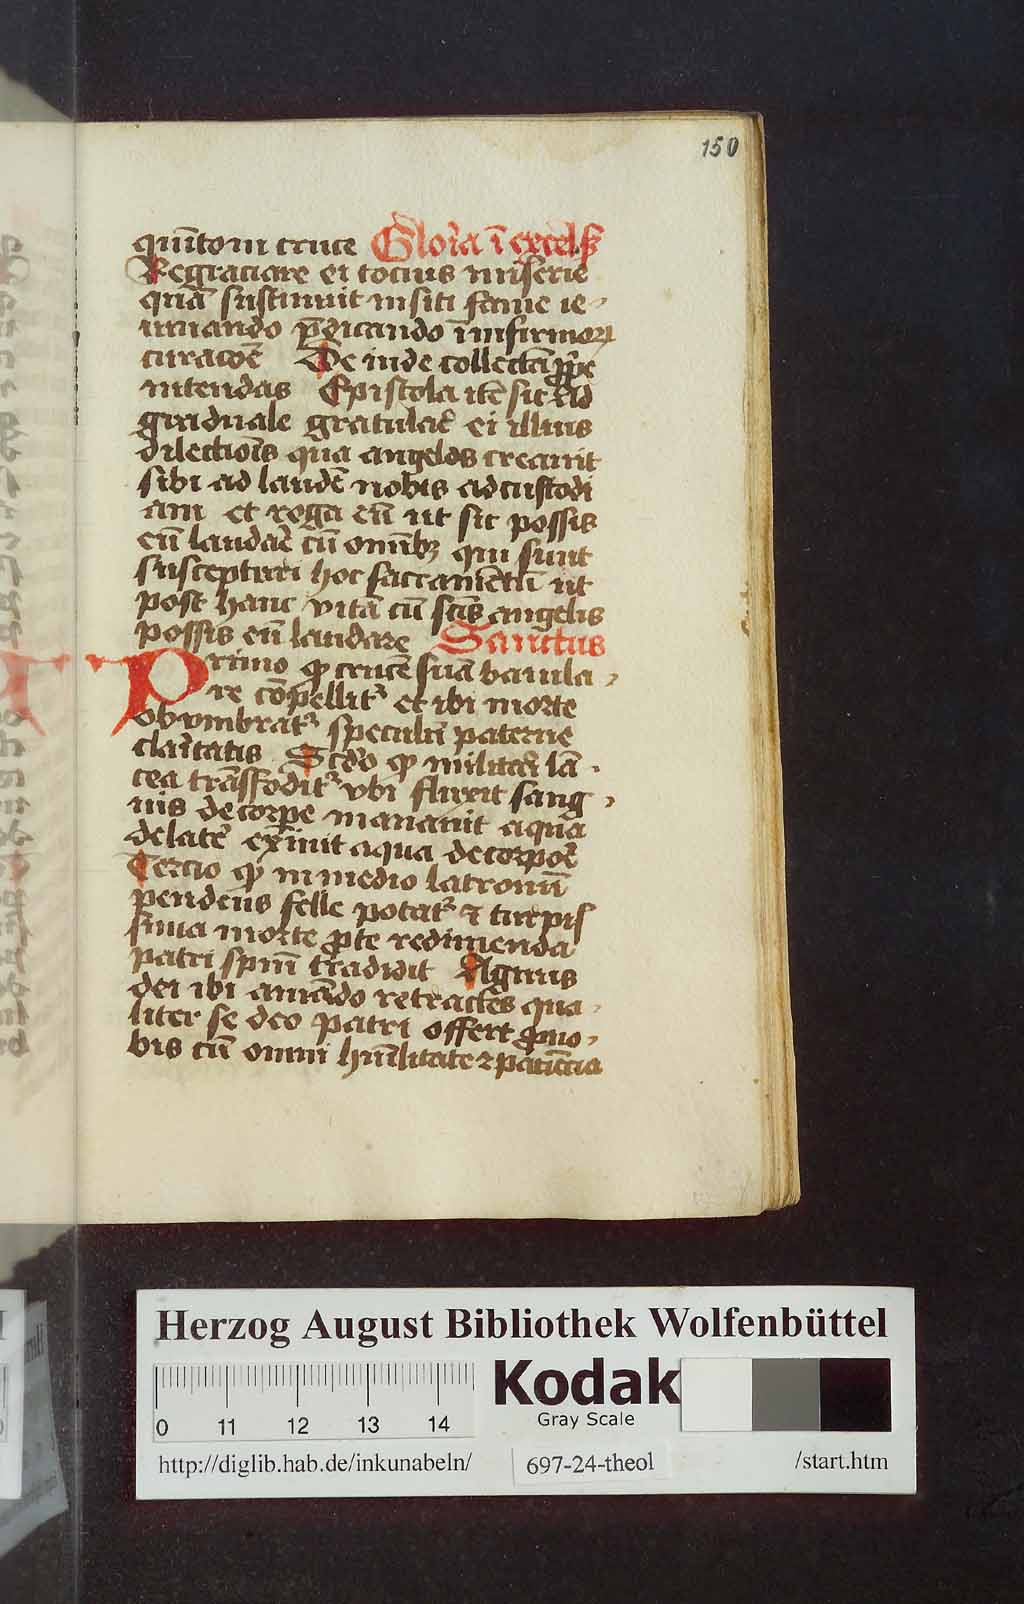 150
quītom cruce Glor̄a ī excels̄
Regraciare ei tocius miserie
quā sustinuit in siti fame ie-
iunando p̄dicando ī infirmoꝝ
curacōē De inde collectā ꝓp̄e
intendas Epistola itē sit Ad
graduale gratular̄ ei illius
dilectiōis qua angelos creauit
sibi ad laudē nobis ad custodi
am et roga eū ut sic possis
eū laudar̄ cū omībꝫ qui sunt
suscepturi hoc sacramētū ut
post hanc vitā cū sc̄is angelis
possis eū laudare Sanctus
Primo ꝙ crucē suā baiula-
re cōpellit᷑ et ibi morte
obumbrat᷑ speculū paterne
clar̄tatis Scd̄o ꝙ militar̄ lā-
cea trāsfodit᷑ vbi fluxit sang-
uis de corpe manauit aqua
de later̄ exiuit aqua de corpor̄
Tercio ꝙ in medio latronū
pendens felle potat᷑ ⁊ turpis
sima morte ꝓ te redimenda
patri sp̄m tradidit Agnus
dei ibi amādo retractes qua-
liter se deo patri offert ꝓ no-
bis cū omni hūilitate ⁊ paciēcia
Herzog August Bibliothek Wolfenbüttel
0 11 12 13 14
Kodak
Gray Scale
http://diglib.hab.de/inkunabeln/ 697-24-theol /start.htm